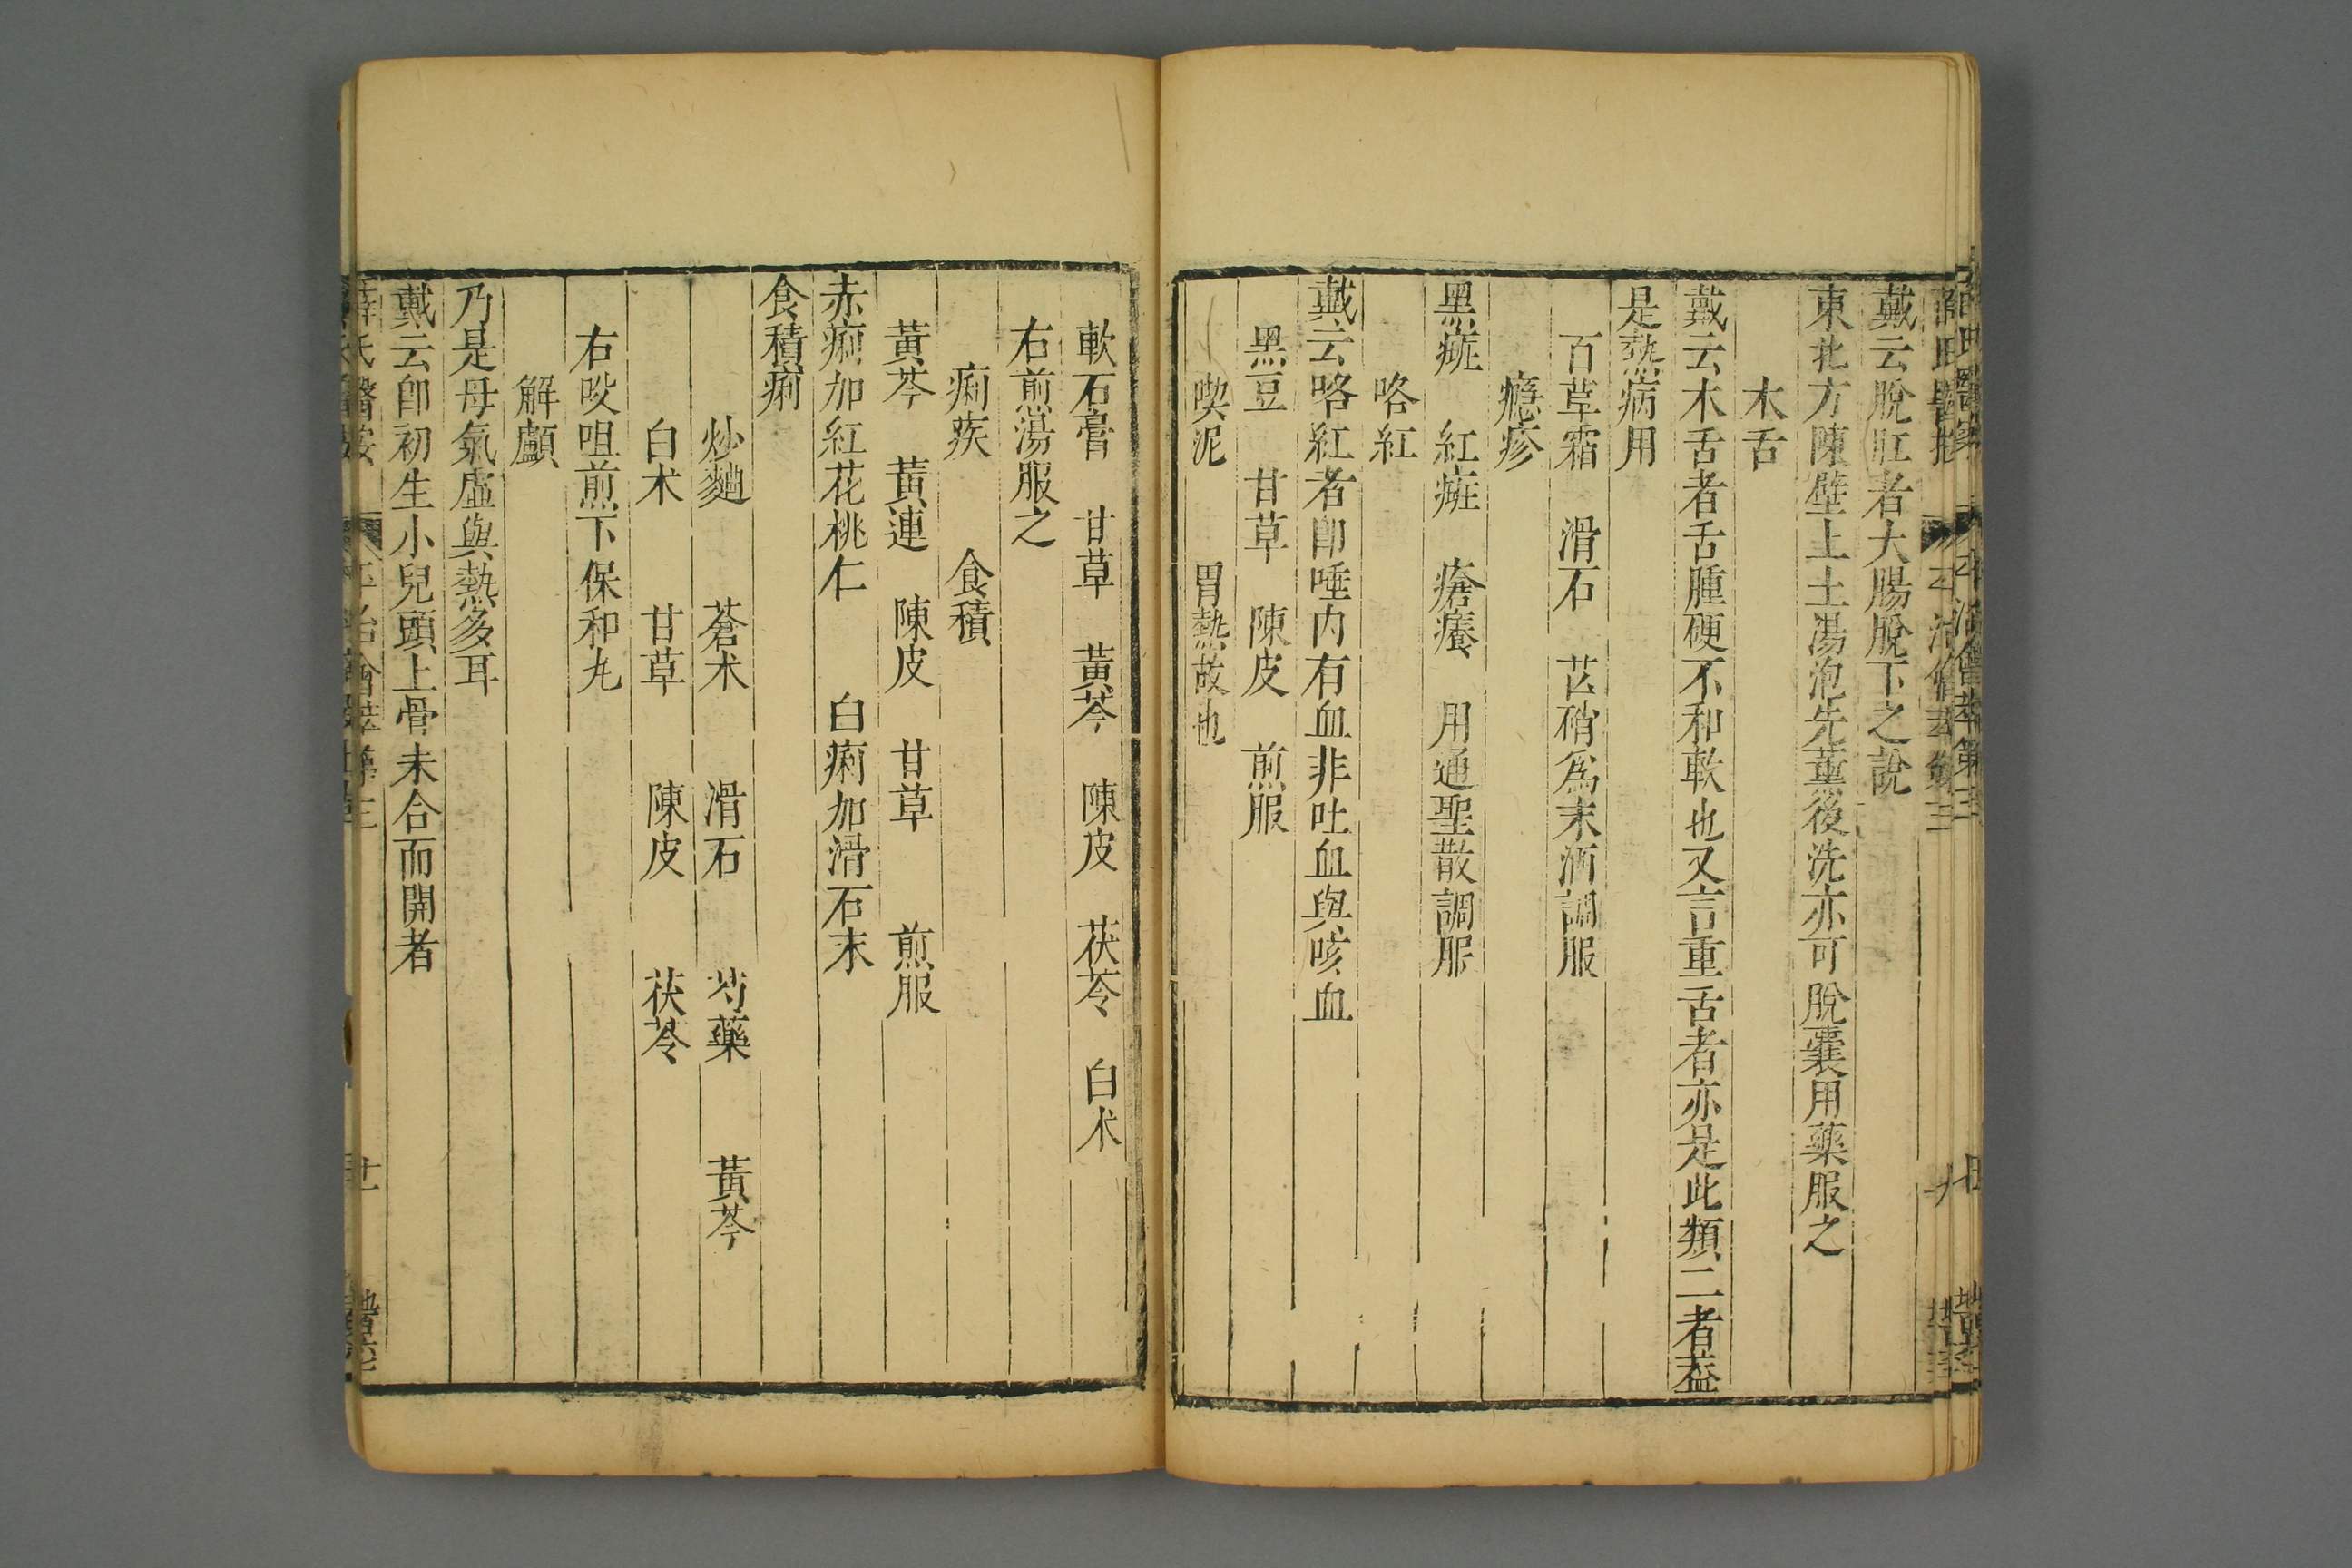 戴云脫肛者大腸脫下之說
東北方陳壁土土湯泡先薰後洗亦可脫囊用藥服之
木舌
戴云木舌者舌腫硬不和軟也又言重舌者亦是此類二者蓋
是熱病用
百草霜 滑石 芒硝為末酒調服
癮疹
黑癍 紅癍 瘡癢 用通聖散調服
咯紅
戴云咯紅者卽唾内有血非吐血與咳血
黑豆 甘草 陳皮 煎服
喫泥 胃熱故也
軟石膏 甘草 黃芩 陳皮 茯苓 白朮
右煎湯服之
痢疾 食積
黃芩 黃連 陳皮 甘草 煎服
赤痢加紅花桃仁 白痢加滑石末
食積痢
炒麯 蒼朮 滑石 芍藥 黃芩
白朮 甘草 陳皮 茯苓
右㕮咀煎下保和丸
解顱
乃是母氣虛與熱多耳
戴云卽初生小兒頭上骨未合而開者